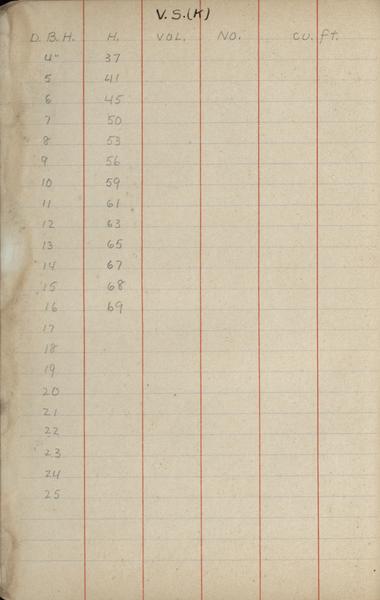 V.S.(K)
D.B.H. H. VOL. NO. CU. ft.
4" 37
5 41
6 45
7 50
8 53
9 56
10 59
11 61
12 63
13 65
14 67
15 68
16 69
17
18
19
20
21
22
23
24
25